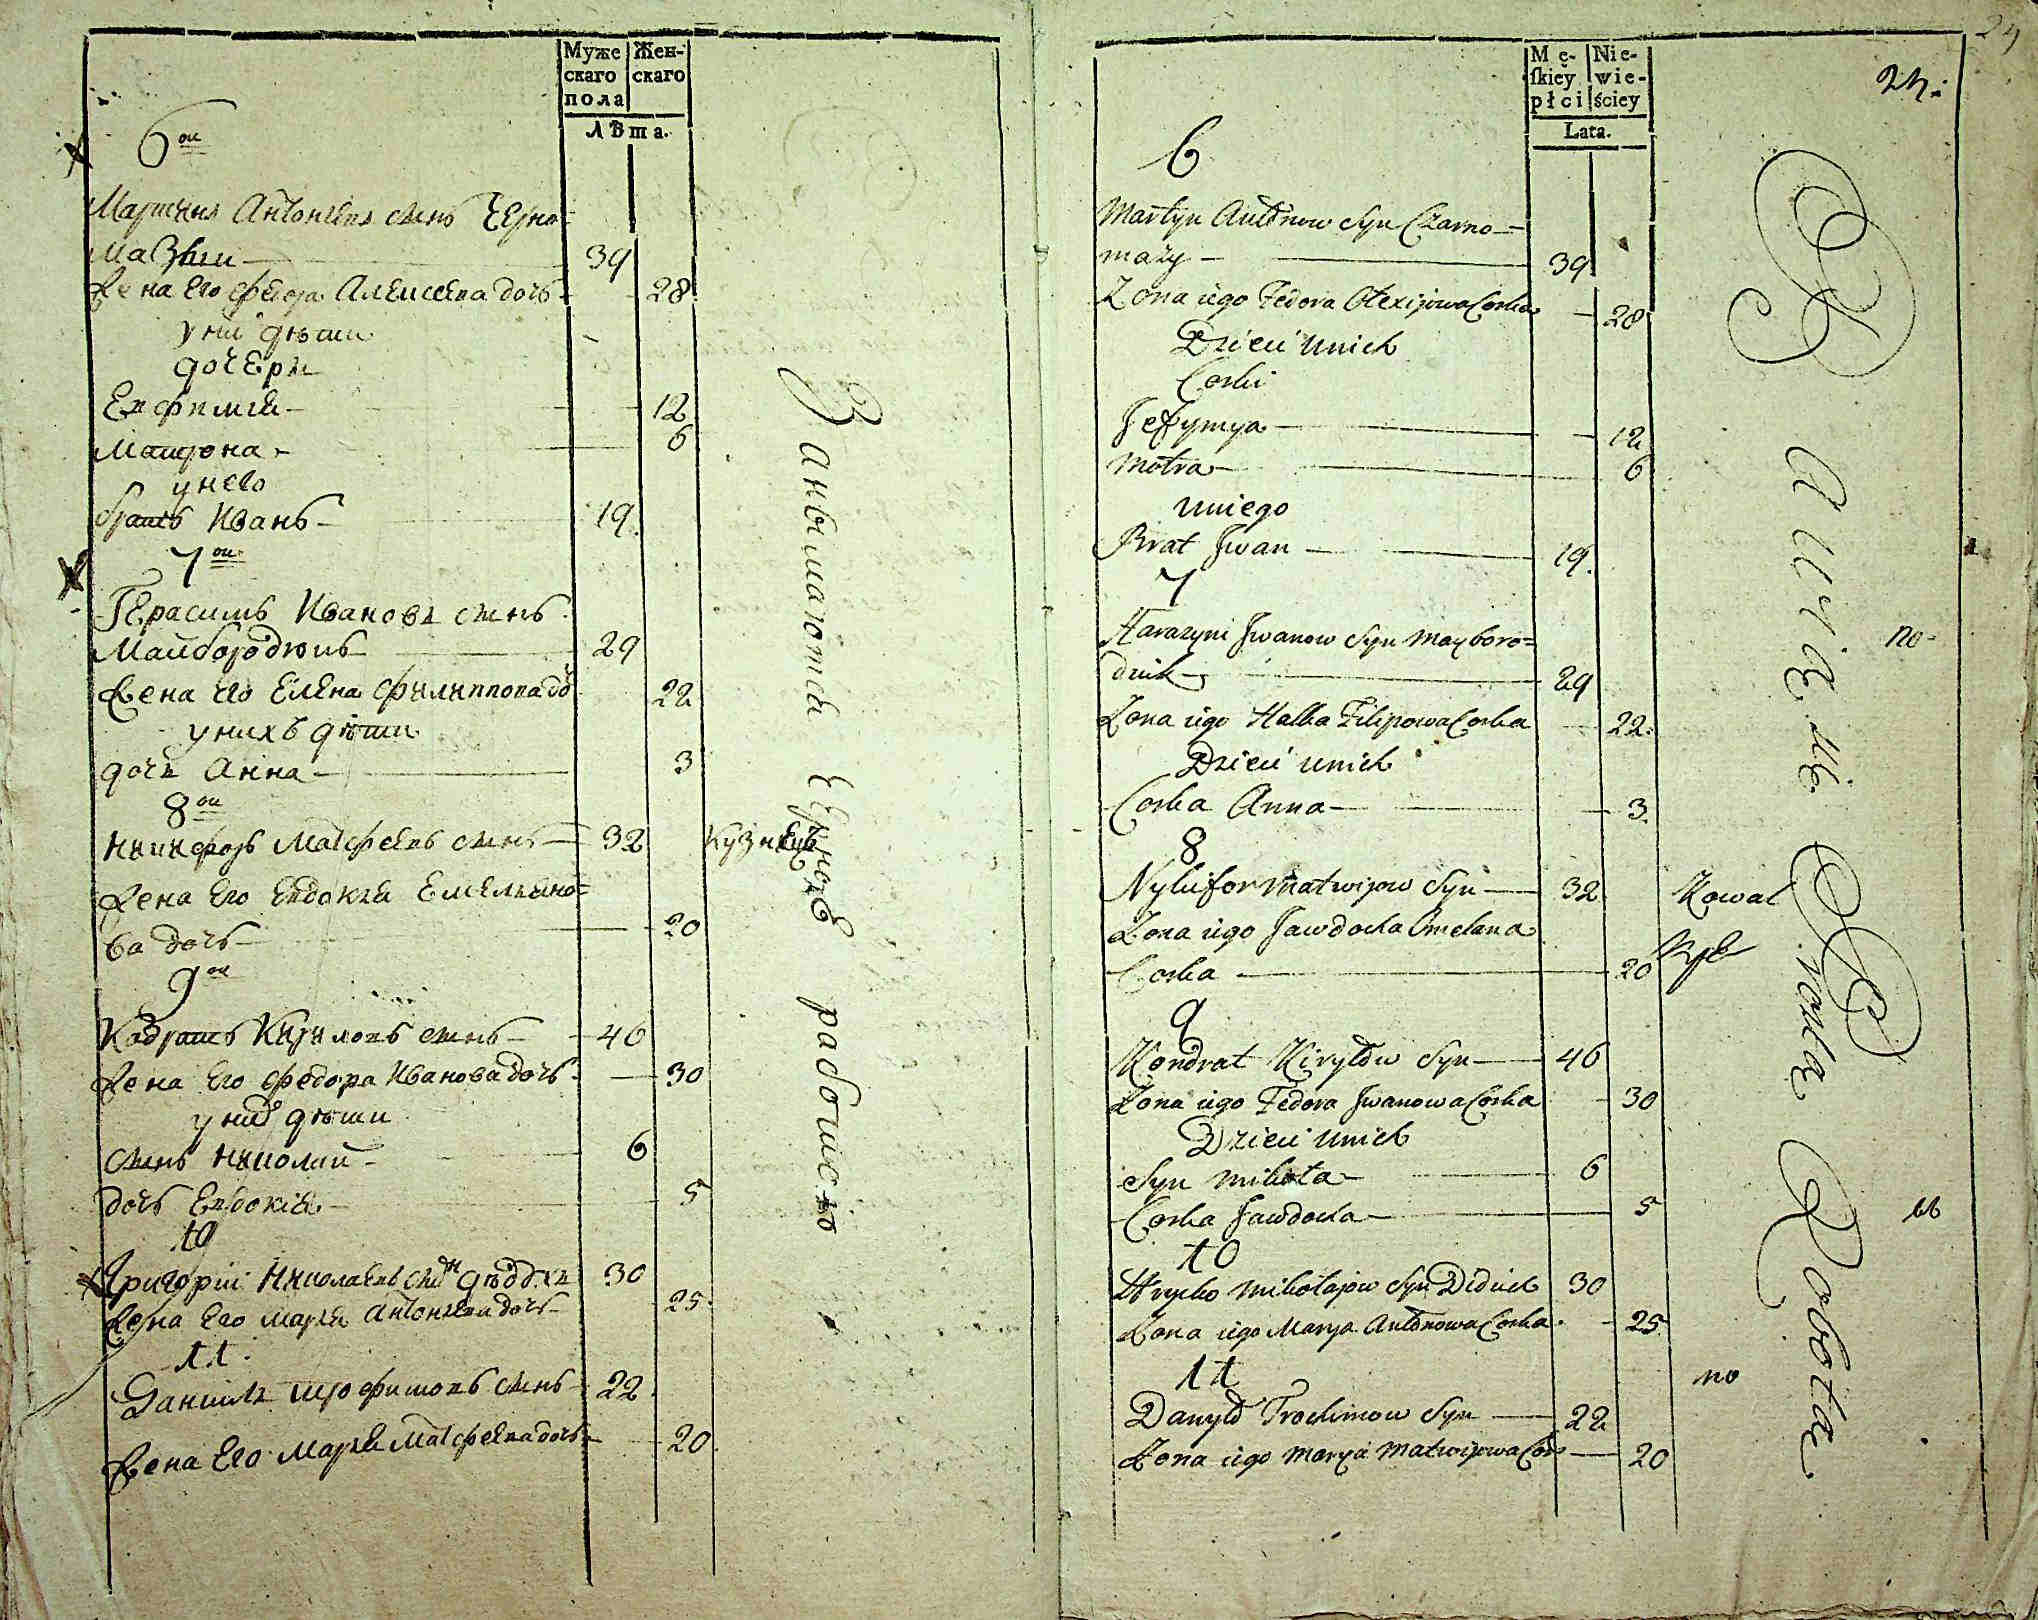 Муже
скаго
пола
Жен-
скаго
Лѣта.
6ои
Мартинъ Антоніевъ сынъ Черно=
мазый 39
Жена Его Федора Алексѣева дочь 28
у них дѣти
дочери
Евфимія 12
Матрона 6
у него
братъ Иванъ 19
7ои
Герасимъ Ивановъ сынъ
Майбородикъ 29
Жена Его Елена Филиппова до 22
у нихъ дѣти
дочь Анна 3
8ои
Никифоръ Матфеевъ сынъ 32 Кузнецъ
Жена Его Евдокія Емельяно=
ва дочь 20
9ои
Кадратъ Кириловъ сынъ 46
Жена Его Федора Иванова дочь 30
у них дѣти
сынъ Николай 6
дочь Евдокія 5
10
Григорій Николаевъ сынъ 30
Жена Его Марія Антоніева дочь 25
11
Даніилъ Трофимовъ сынъ 22
Жена Его Марія Матфеева дочь 20
Занымаются Черною работою
Mę-
skiey
płci
Nie-
wie-
ściey
Lata.
24
6
Martyn Antonow Syn Czarno=
mazy 39
Zona iego Fedora Olexijowa Corka 28
Dzieci unich
Corki
Jefymya 12
Motra 6
uniego
Brat Jwan 19.
7
Harazym Jwanow Syn Mayboro=
dnik 29
Zona iego Halka Filipowa Corka 22.
Dzieci unich
Corka Anna 3.
8
Nykifor Matwijow Syn 32 Kowal
Zona iego Jawdocka Omelana
Corka 20
9
Kondrat Kiryłow Syn 46
Zona iego Fedora Jwanowa Corka 30
Dzieci unich
Syn Mikoła 6
Corka Jawdocka 5
10
Hrycko Mikołajow Syn Didich 30
Zona iego Marya Antonowa Corka 25
11
Danyło Trochimow Syn 22
Zona iego Marya Matwijowa Cor 20
no
Bawią się Rolą Robotą